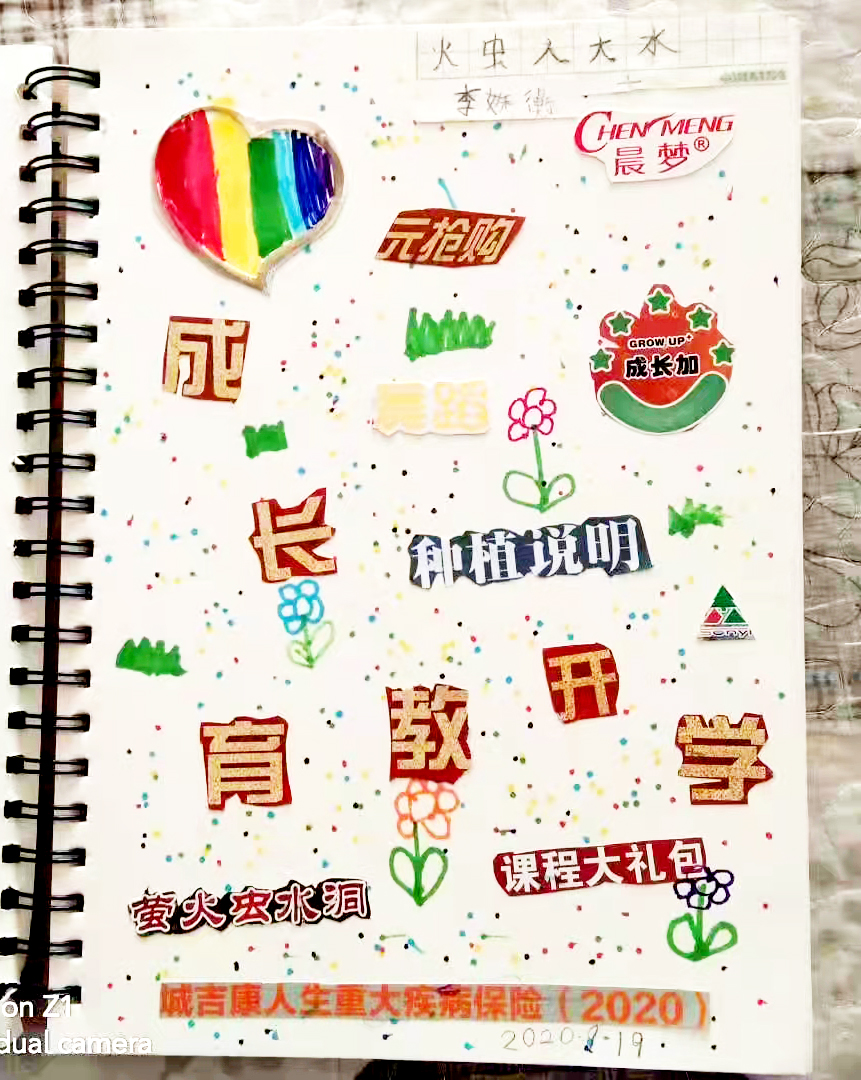 火虫人大水
李姝衡
CHENMENG
晨梦®
元抢购
成
GROW UP+
成长加
舞蹈
长
种植说明
开
育
教
学
课程大礼包
萤火虫水洞
诚吉康人生重大疾病保险（2020）
2020.8.19
on Z1
dual camera